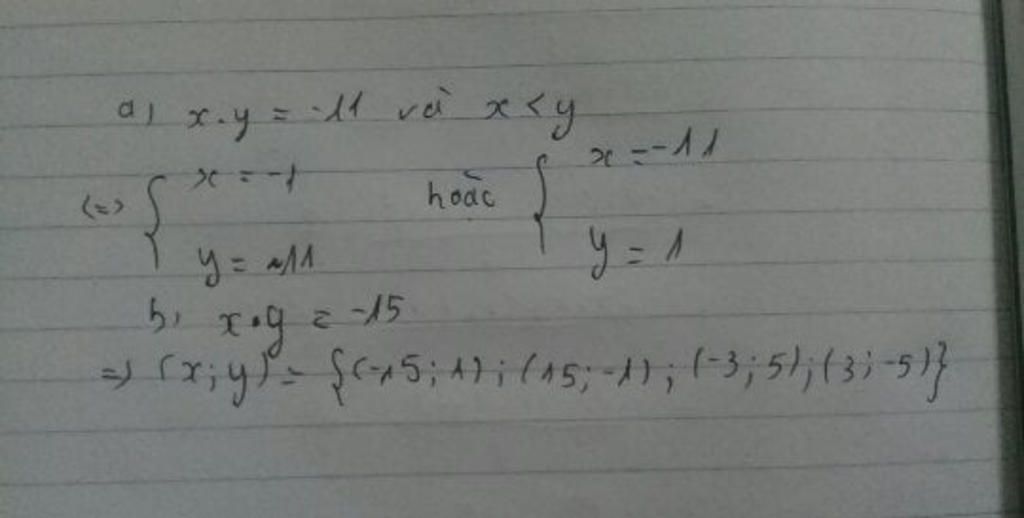 a) x.y = -11 và x < y
(=> { x = -1 hoặc { x = -11
y = 11 y = 1
b, x.y = -15
=> (x; y) = {(-15; 1); (15; -1); (-3; 5); (3; -5)}